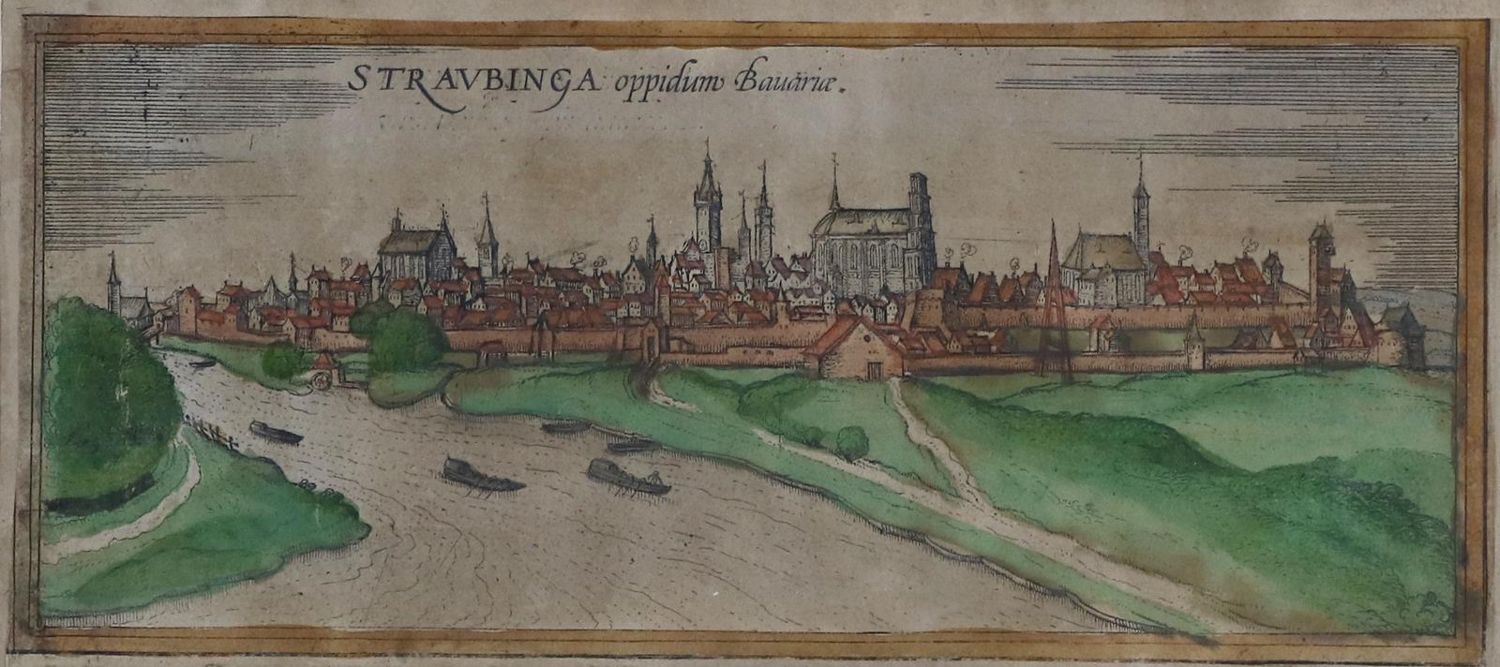 STRAVBINGA oppidum Bauariæ.